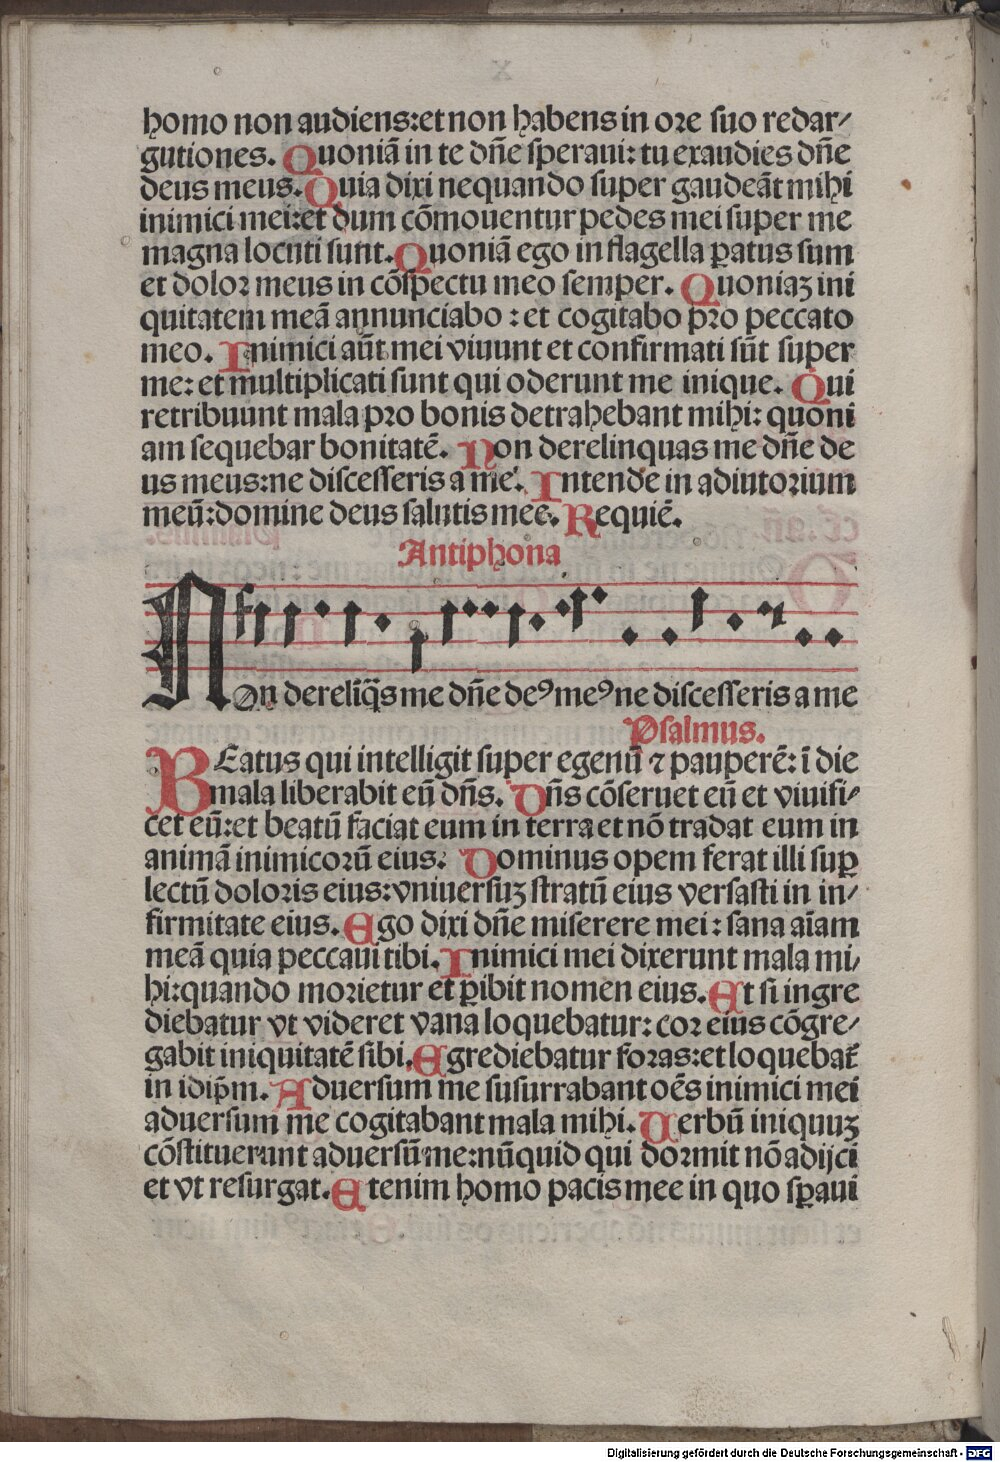 homo non audiens:et non habens in ore suo redar-
gutiones. Quoniā in te dn̄e speraui: tu exaudies dn̄e
deus meus. Quia dixi nequando super gaudeāt mihi
inimici mei:et dum cōmouentur pedes mei super me
magna locuti sunt. Quoniā ego in flagella ꝑatus sum
et dolor meus in cōspectu meo semper. Quoniaꝫ ini
quitatem meā annunciabo : et cogitabo pro peccato
meo. Inimici aūt mei viuunt et confirmati sūt super
me: et multiplicati sunt qui oderunt me inique. Qui
retribuunt mala pro bonis detrahebant mihi: quoni
am sequebar bonitatē. Non derelinquas me dn̄e de
us meus:ne discesseris a me. Intende in adiutorium
meū:domine deus salutis mee. Requiē.
Antiphona
NOn derelīq̄s me dn̄e deꝰ meꝰ ne discesseris a me
Psalmus.
BEatus qui intelligit super egenū ⁊ pauperē: ī die
mala liberabit eū dn̄s. Dn̄s cōseruet eū et viuifi-
cet eū:et beatū faciat eum in terra et nō tradat eum in
animā inimicorū eius. Dominus opem ferat illi suꝑ
lectū doloris eius:vniuersuꝫ stratū eius versasti in in-
firmitate eius. Ego dixi dn̄e miserere mei: sana aīam
meā quia peccaui tibi. Inimici mei dixerunt mala mi-
hi:quando morietur et ꝑibit nomen eius. Et si ingre
diebatur vt videret vana loquebatur: cor eius cōgre-
gabit iniquitatē sibi. Egrediebatur foras:et loquebat᷑
in idip̄m. Aduersum me susurrabant oēs inimici mei
aduersum me cogitabant mala mihi. Verbū iniquuꝫ
cōstituerunt aduersū me:nūquid qui dormit nō adijci
et vt resurgat. Etenim homo pacis mee in quo sꝑaui
Digitalisierung gefördert durch die Deutsche Forschungsgemeinschaft - DFG